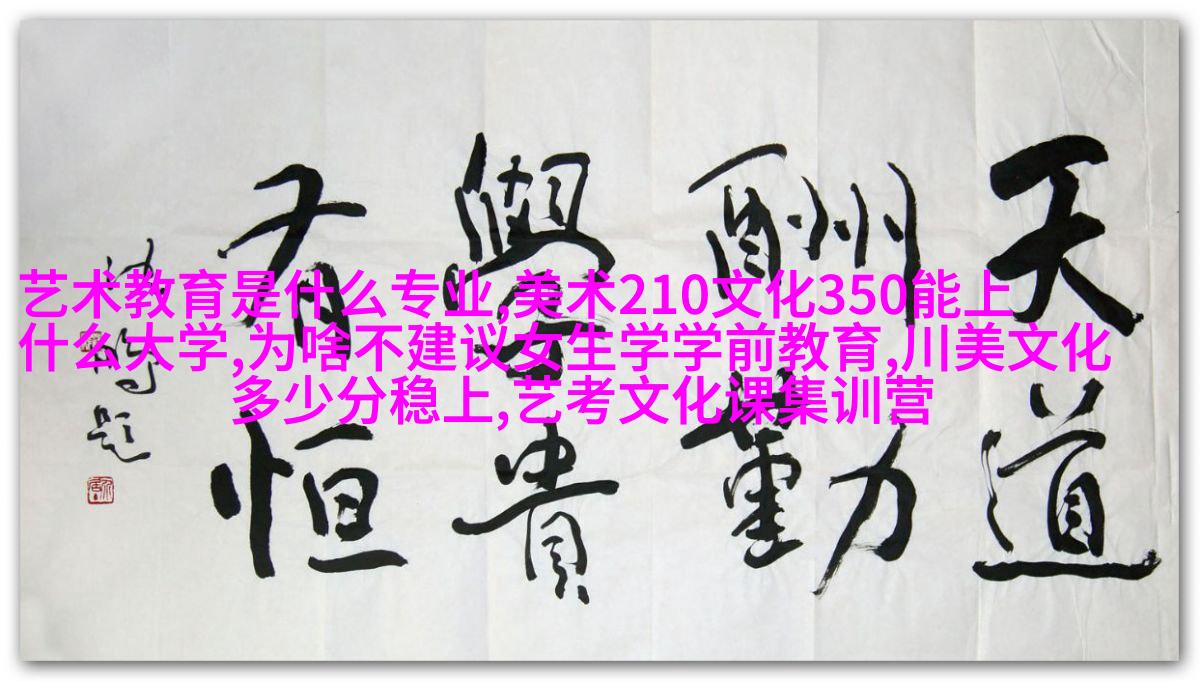 天道
酬勤
學貴
有恒
题
艺术教育是什么专业,美术210文化350能上
什么大学,为啥不建议女生学学前教育,川美文化
多少分稳上,艺考文化课集训营